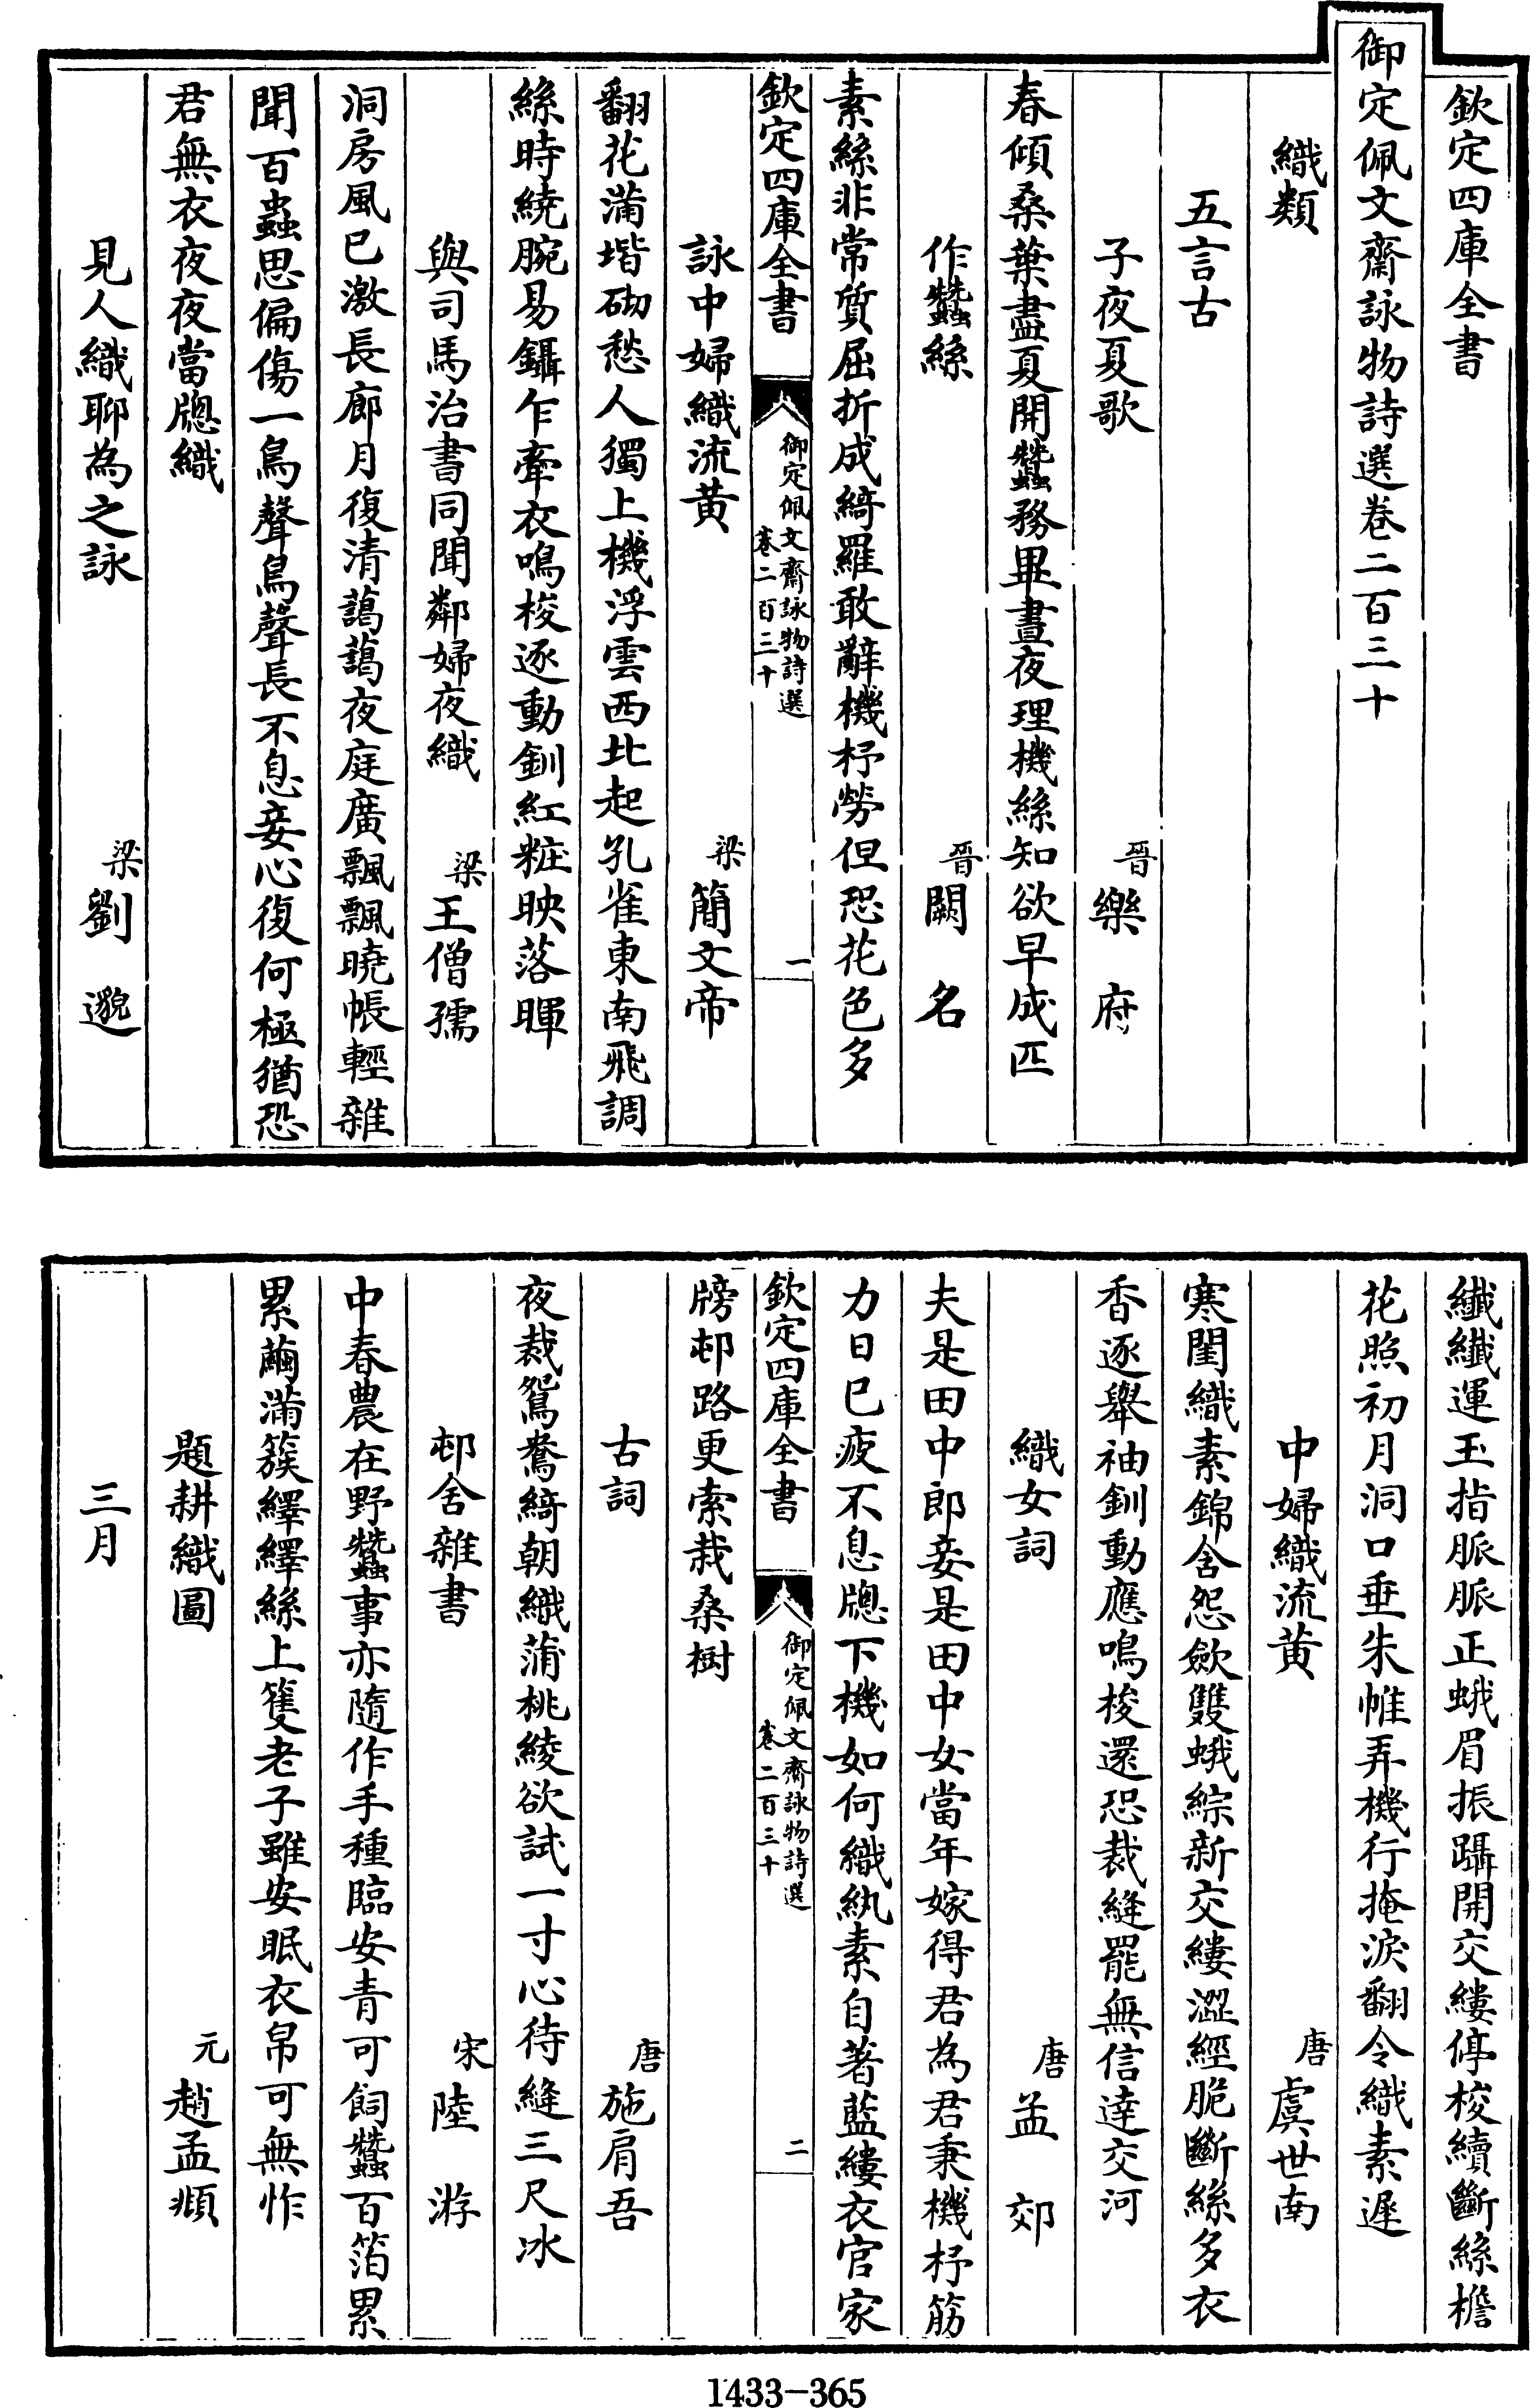 欽定四庫全書
御定佩文齋詠物詩選卷二百三十
織類
五言古
子夜夏歌 晉樂府
春傾桑葉盡夏開蠶務畢晝夜理機絲知欲早成匹
作蠶絲 晉闕名
素絲非常質屈折成綺羅敢辭機杼勞但恐花色多
欽定四庫全書 御定佩文齋詠物詩選 卷二百三十 一
詠中婦織流黃 梁簡文帝
翻花滿堦砌愁人獨上機浮雲西北起孔雀東南飛調
絲時繞腕易鑷乍牽衣鳴梭逐動釧紅粧映落暉
與司馬治書同聞鄰婦夜織 梁王僧孺
洞房風已激長廊月復清藹藹夜庭廣飄飄曉帳輕雜
聞百蟲思偏傷一鳥聲鳥聲長不息妾心復何極猶恐
君無衣夜夜當牕織
見人織聊為之詠 梁劉邈
纖纖運玉指脈脈正蛾眉振躡開交縷停梭續斷絲檐
花照初月洞口垂朱帷弄機行掩淚翻令織素遲
中婦織流黃 唐虞世南
寒閨織素錦含怨歛雙蛾綜新交縷澀經脆斷絲多衣
香逐舉袖釧動應鳴梭還恐裁縫罷無信達交河
織女詞 唐孟郊
夫是田中郎妾是田中女當年嫁得君為君秉機杼筋
力日已疲不息牕下機如何織紈素自著藍縷衣官家
欽定四庫全書 御定佩文齋詠物詩選 卷二百三十 二
牓邨路更索栽桑樹
古詞 唐施肩吾
夜裁鴛鴦綺朝織蒲桃綾欲試一寸心待縫三尺冰
邨舍雜書 宋陸游
中春農在野蠶事亦隨作手種臨安青可飼蠶百箔累
累繭滿簇繹繹絲上籰老子雖安眠衣帛可無怍
題耕織圖 元趙孟頫
三月
1433-365